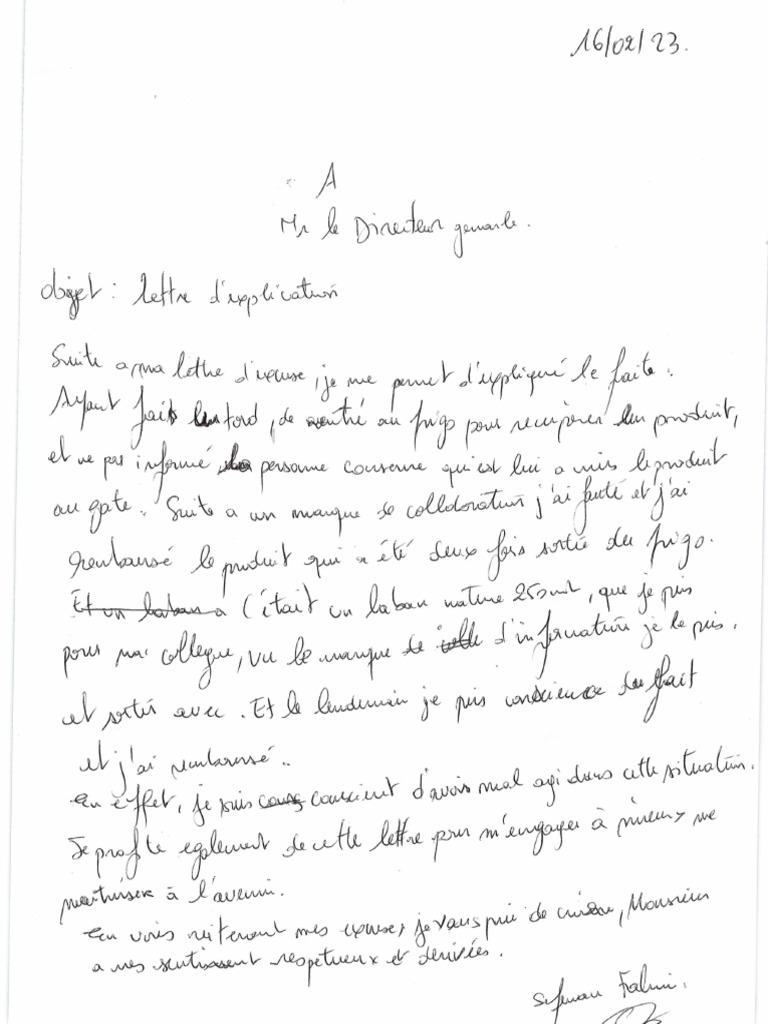 16/02/23.
A
Mr le Directeur generale.
objet : lettre d'explication
Suite a ma lettre d'excuse, je me permet d'expliqué le faite.
Ayant fait tord, de rentré au frigo pour recupérer un produit,
et ne pas informé la personne conserne qu'est lui a mis le produit
au gate. Suite a un manque de colldoration j'ai fauté et j'ai
remboursé le produit qui a été deux fois sortie du frigo.
Et un laban a C'était un laban nature 250ml, que je pris
pour ma collegue, vu le manque de d'information je le pris.
et sortir avec. Et le lendemain je pris conscience du fait
et j'ai remboursé..
En effet, je suis conscient d'avoir mal agi dans cette situation.
Je profite egalement de cette lettre pour m'engager à mieux me
maitriser à l'avenir.
En vous reiterant mes excuses, je vous prie de croire, Monsieur
a mes sentissent respetueux et